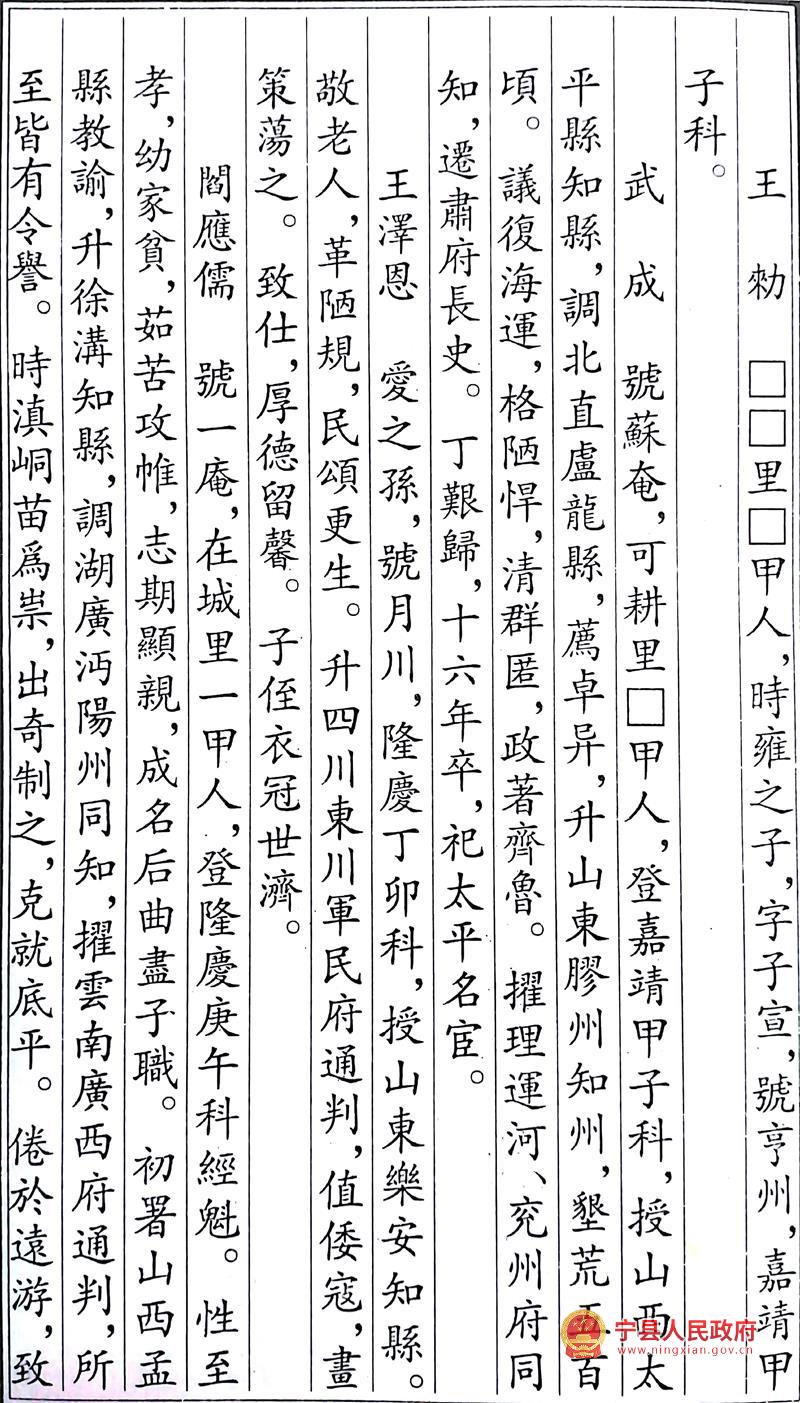 王　勑　□□里□甲人，時雍之子，字子宣，號亨州，嘉靖甲
子科。
武　成　號蘇奄，可耕里□甲人，登嘉靖甲子科，授山西太
平縣知縣，調北直盧龍縣，薦卓异，升山東膠州知州，墾荒五百
頃。議復海運，格陋悍，清群匿，政著齊魯。擢理運河、兖州府同
知，遷肅府長史。丁艱歸，十六年卒，祀太平名宦。
王澤恩　愛之孫，號月川，隆慶丁卯科，授山東樂安知縣。
敬老人，革陋規，民頌更生。升四川東川軍民府通判，值倭寇，畫
策蕩之。致仕，厚德留馨。子侄衣冠世濟。
閻應儒　號一庵，在城里一甲人，登隆慶庚午科經魁。性至
孝，幼家貧，茹苦攻帷，志期顯親，成名后曲盡子職。初署山西孟
縣教諭，升徐溝知縣，調湖廣沔陽州同知，擢雲南廣西府通判，所
至皆有令譽。時滇峒苗爲祟，出奇制之，克就底平。倦於遠游，致
宁县人民政府
www.ningxian.gov.cn